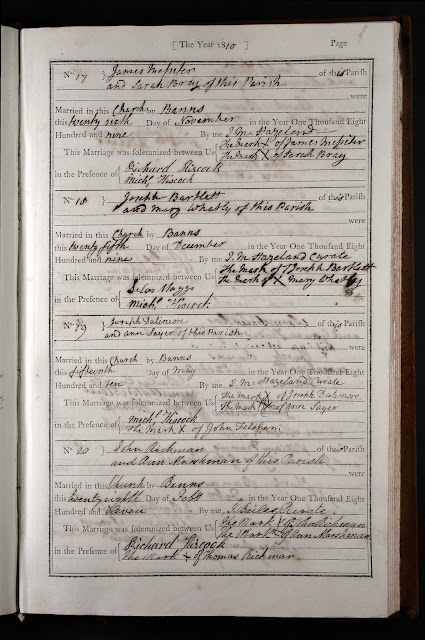 [ The Year 1810 ] Page
No 17 James Messiter of this Parish
and Sarah Bray of this Parish
were
Married in this Church by Banns
this twenty sixth Day of November in the Year One Thousand Eight
Hundred and nine By me J. M. Hazeland
This Marriage was solemnized between Us The mark X of James Messiter
The Mark X of Sarah Bray
in the Presence of Richard Hiscock
Michl Hiscock
No 18 Joseph Bartlett of this Parish
and Mary Whatly of this Parish
were
Married in this Church by Banns
this twenty fifth Day of December in the Year One Thousand Eight
Hundred and nine By me J. M Hazeland Curate
This Marriage was solemnized between Us The mark of X Joseph Bartlett
The mark of X Mary Whatly
in the Presence of Silas
Michl Hiscock
No 19 Joseph of this Parish
and Ann Sayer of this Parish
were
Married in this Church by Banns
this fifteenth Day of May in the Year One Thousand Eight
Hundred and ten By me J. M Hazeland Curate
This Marriage was solemnized between Us The mark X of Joseph
The mark X of Ann Sayer
in the Presence of Michl Hiscock
The mark X of John Feltham
No 20 John Rickman of this Parish
and Ann Marshman of this Parish
were
Married in this Church by Banns
this twenty eighth Day of in the Year One Thousand Eight
Hundred and eleven By me J. Curate
This Marriage was solemnized between Us The Mark X of John Rickman
The Mark X of Ann Marshman
in the Presence of Richard Hiscock
The Mark X of Thomas Rickman